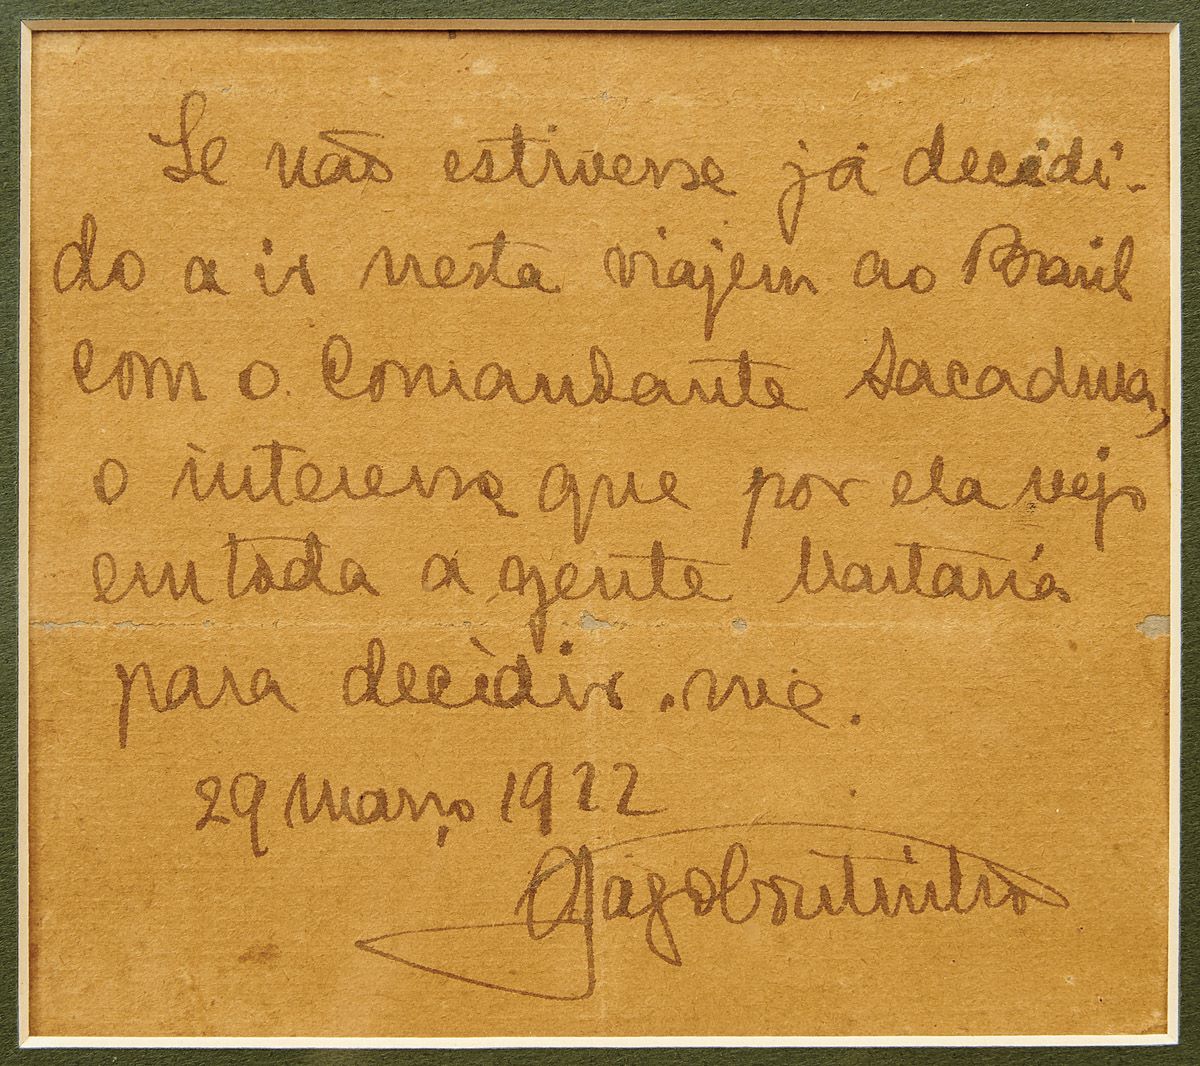 Se não estivesse já decidi-
do a ir nesta viajem ao Brasil
com o Comandante Sacadura,
o interesse que por ela vejo
em toda a gente bastaria
para decidir-me.
29 Março 1922
Gago Coutinho